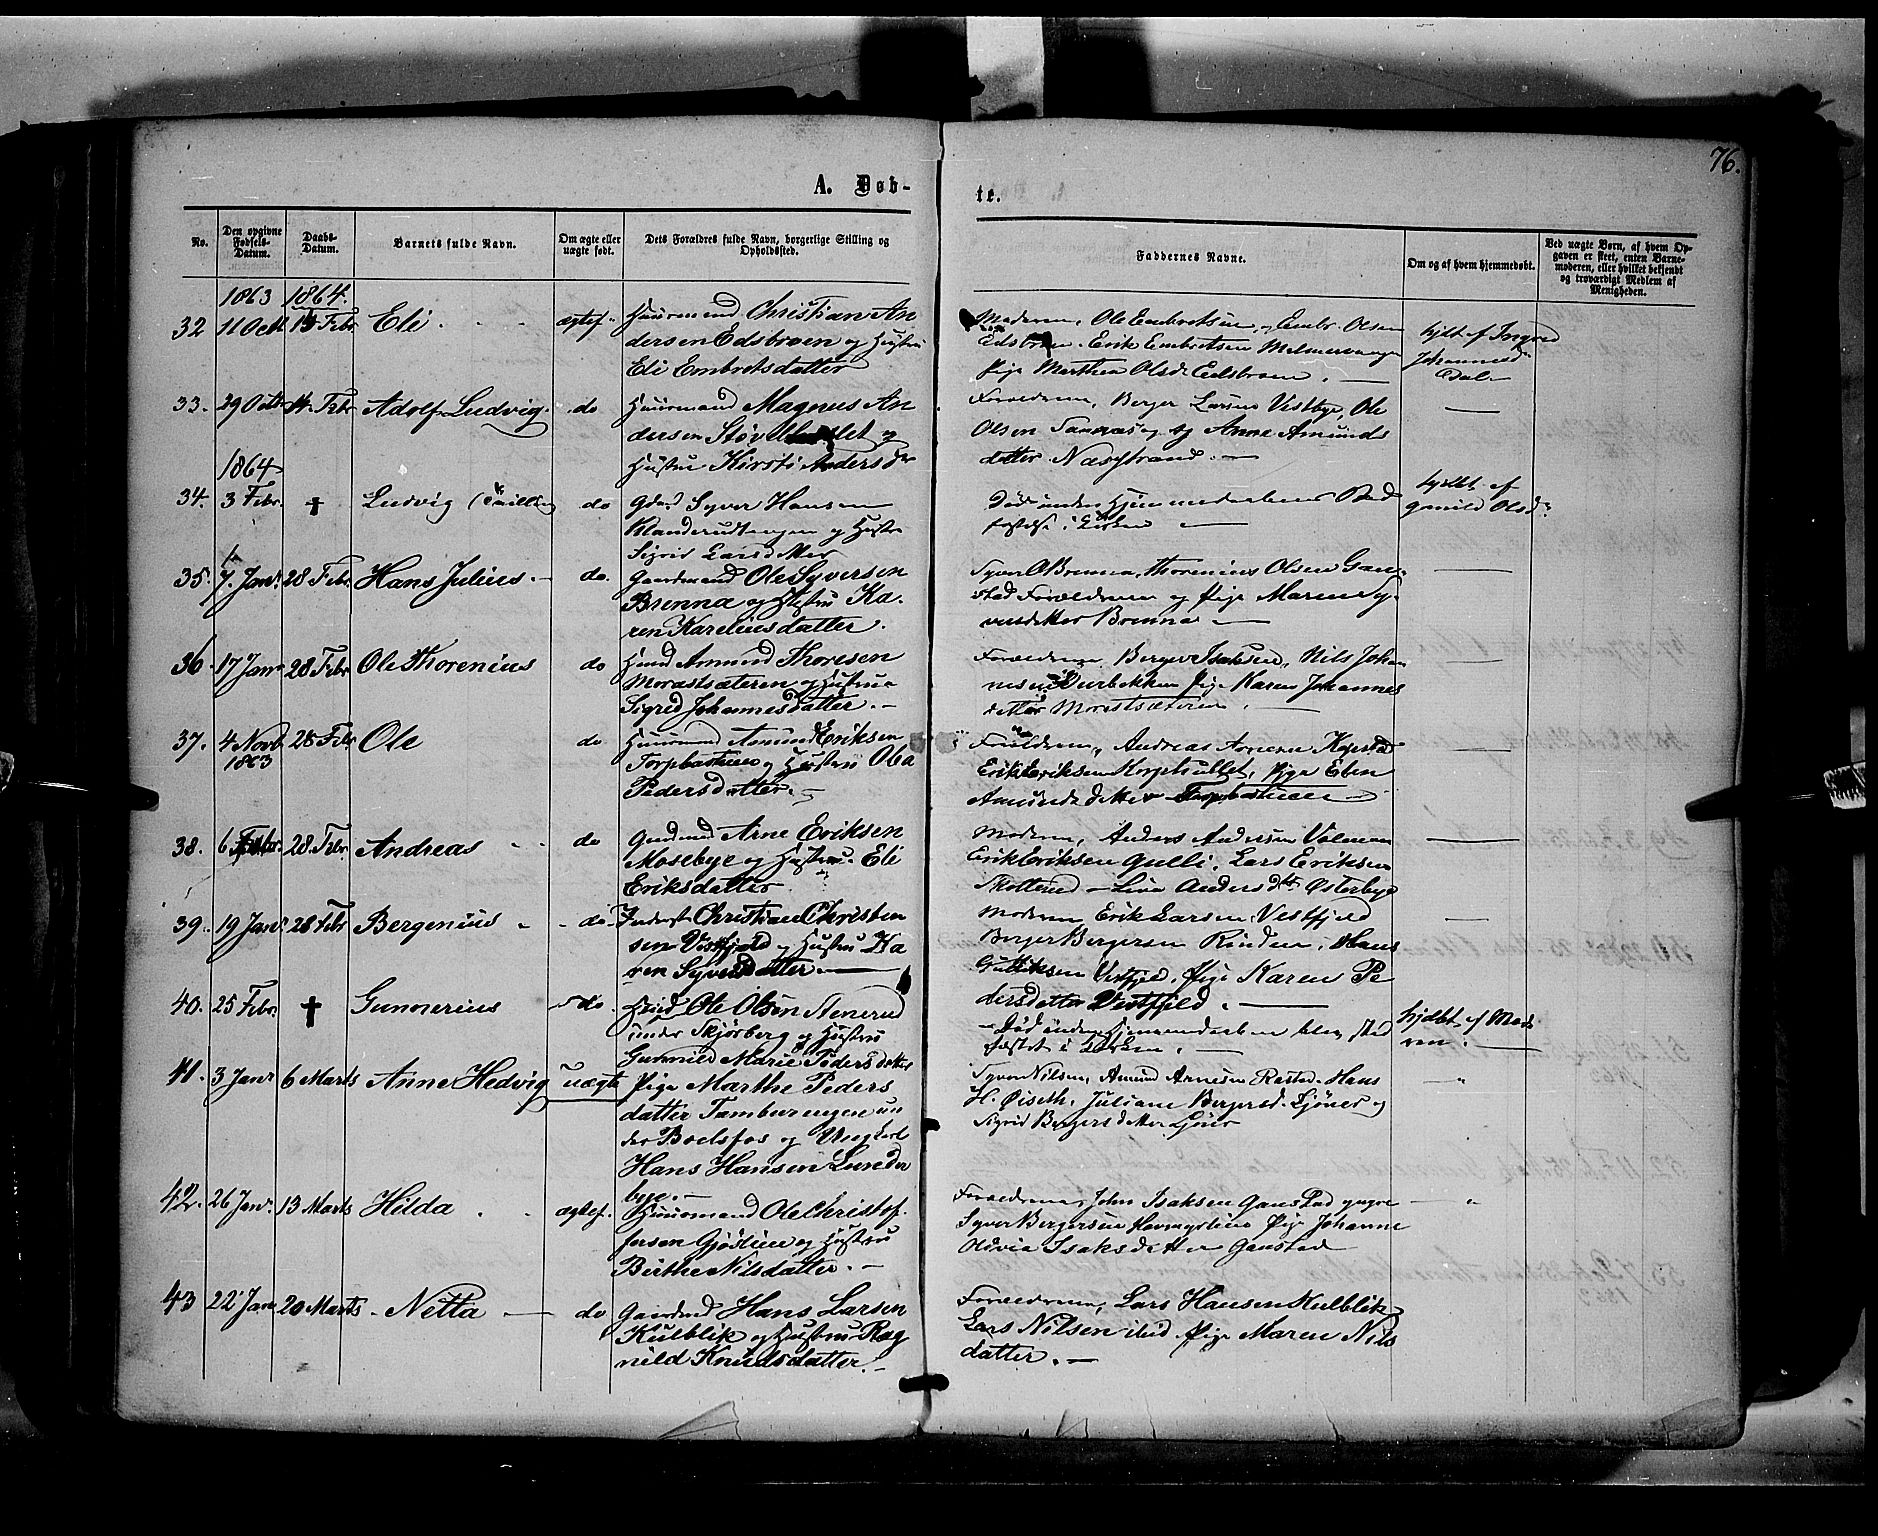 76.
A. Døb-
te.
No.
Den opgivne Fødsels-Datum.
Daabs-Datum.
Barnets fulde Navn.
Om ægte eller uægte født.
Dets Forældres fulde Navn, borgerlige Stilling og Opholdssted.
Faddernes Navne.
Om og af hvem hjemmedøbt.
Ved uægte Børn, af hvem Op-
gaven er skeet, enten Barne-
moderen, eller hvilket bekjendt
og troværdigt Medlem af
Menigheden.
1863 1864.
32 11 Oct 14 Febr Eli ægtef. Huusmand Christian An
dersen Edsbroen og Hustru
Eli Embretsdatter
Moderen, Ole Embretsen, Embr. Olsen
Edsbroen. Erik Embretsen
Pige Marthea Olsd. Edsbroen. —
hjdt af Ingred
Johannesd
Dal
33. 29 Octbr 14 Febr Adolf Ludvig. do Huusmand Magnus An
dersen og
Hustru Kirsti Andersdr
Forældrene, Berger Larsen Vestbye, Ole
Olsen og Anne Amunds
datter Næsstrand. —
1864
34. 3 Febr. † Ludvig (Tvilling do Gdmd Syver Hansen
og Hustr
Sigrid Larsdatter
Død under Hjemmedaaben Stad
fæstelse i Kirken —
hjdbt af
Gunild Olsd.
35. 7. Janr. 28 Febr. Hans Julius. — do. Gaardmand Ole Syversen
Brenna og Hustru Ka-
ren Kareliusdatter.
Syver O Brenna, Thorenius Olsen Gan-
stad Forældrene og Pige Maren Sy-
versdatter Brenna —
36. 17 Janr 28 Febr Ole Thorenius do Hmd Amund Thoresen
Morastsæteren og Hustru
Sigrid Johannesdatter. —
Forældrene, Berger Isaksen, Nils Johan
nesen Pige Karen Johannes
datter Morastsæteren. —
37. 4 Novb. 1863 28 Febr Ole do Huusmand Amund Eriksen
og Hustru Olea
Pedersdatter. —
Forældrene, Andreas Arnesen
Erik Eriksen Pige Eben
Amundsdatter
38. 6 Febr. 28. Febr. Andreas do Gaardmd Arne Eriksen
Mosebye og Hustru Eli
Eriksdatter
Moderen, Anders Andersen
Erik Eriksen Gulli, Lars Eriksen
Lina Andersdtr Østerbye
39. 19 Janr 28 Febr Bergenius do. Inderst Christian Christen
sen Vestfjeld og Hustru Ka
ren Syversdatter —
Moderen Erik Larsen Vestfjeld
Berger Bergersen Rinden, Hans
Gulliksen Vestfjeld, Pige Karen Pe
dersdatter Vestfjeld. —
40. 25 Febr. † Gunnerius do. Hmd Ole Olsen Stenerud
under Skjørberg og Hustru
Gunnild Marie Pedersdatter
— Død under Hjemmedaaben blev stad
fæstet i Kirken. —
hjdbt af
41. 3 Janr 6 Marts Anne Hedvig uægte Pige Marthe Peders
datter Tamburengen un
der Boelsfos og Ungkarl
Hans Hansen Lunder
bye. —
Syver Nilsen, Amund Arnesen Rastad. Hans
H. Øiseth, Juliane Bergersd. Ljøner og
Sigrid Bergersdatter Ljøner
42. 26 Janr. 13 Marts Hilda ægtef. Huusmand Ole Christof-
fersen og Hustru
Birthe Nilsdatter. —
Forældrene, John Isaksen Ganstad yngre
Syver Bergersen Pige Johanne
Oldvia Isaksdatter Ganstad
43 22 Janr 20 Marts. Netta — do Gaardmd Hans Larsen
Kulblik og Hustru Rag
nild Knudsdatter. —
Forældrene, Lars Hansen Kulblik
Lars Nilsen ibid. Pige Maren Nils
datter. —